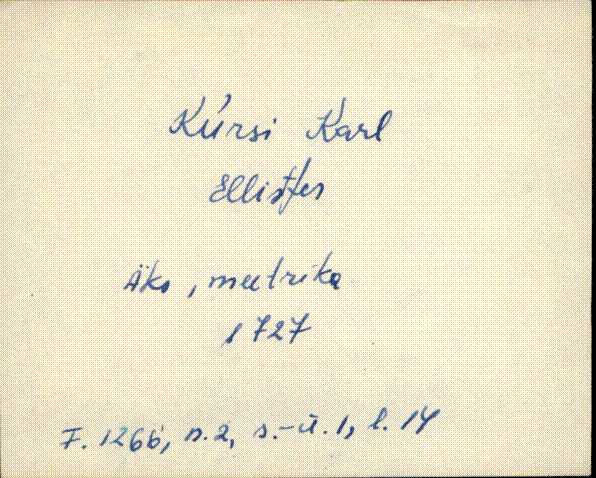 Kürsi Karl
Ellistfer
Äks, meetrika
1727
F. 1266, n. 2, s.-ü. 1, l. 14